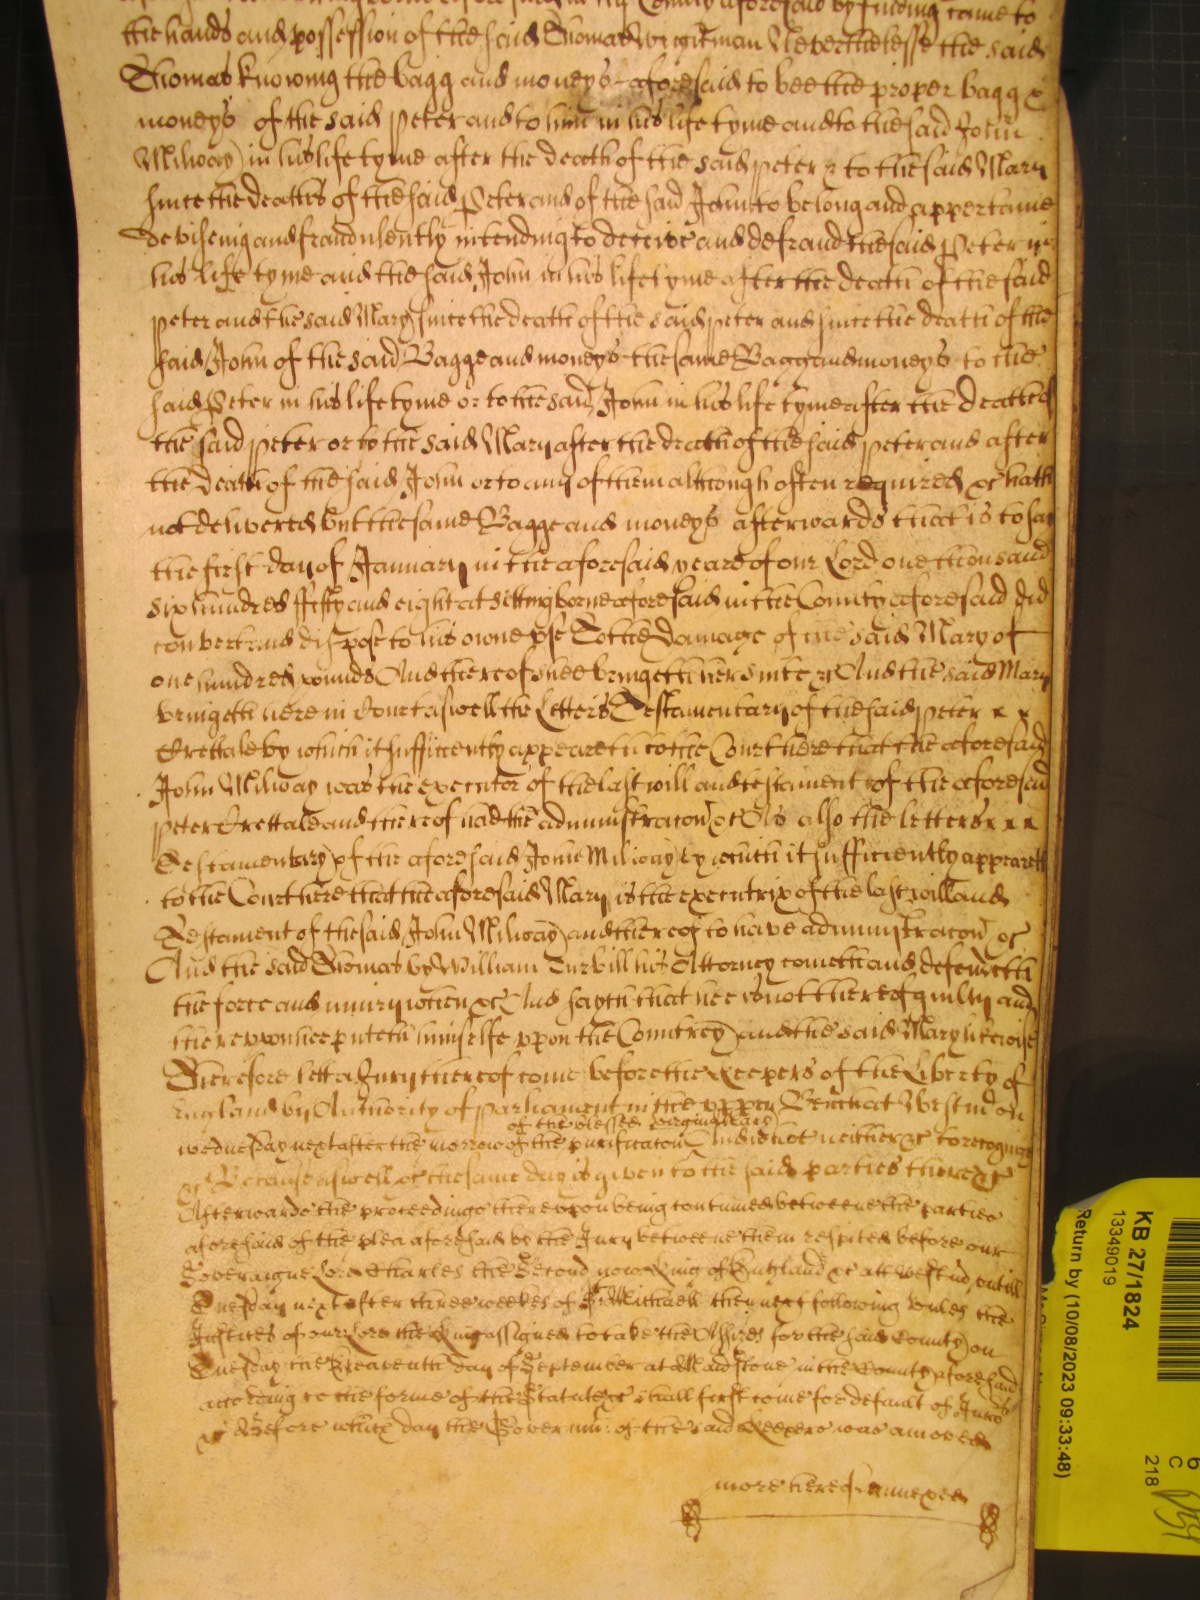 the County aforesaid by finding came to
the hands and possession of the said Thomas Wightman Neverthelesse the said
Thomas knowing the bagg and moneys aforesaid to bee the proper bagg &
moneys of the said Peter and to him in his life tyme and to the said John
Milway in his life tyme after the death of the said peter & to the said Mary
since the deaths of the said Peter and of the said John to belong and appertaine
devisenig and fraudulently intending to deceive and defraud the said Peter in
his life tyme and the said John in his life tyme after the death of the said
peter and the said Mary since the death of the said peter and since the death of the
said John of the said Bagge and moneys the same Bagg and moneys to the
said Peter in his life tyme or to the said John in his life tyme after the death of
the said peter or to the said Mary after the death of the said peter and after
the death of the said John or to any of them although often required &c hath
not delivered but the same Bagge and moneys afterwards that is to say
the first day of January in the aforesaid yeare of our Lord one thousand
six hundred fifty and eight at Sittingborne aforesaid in the County aforesaid did
convert and dispose to his owne use To the damage of the said Mary of
one hundred pounds And thereof shee bringeth her suite &c And the said Mary
bringeth here in Court aswell the Letters Testamentary of the said peter x x
by which it sufficiently appeareth to the Court here that the aforesaid
John Milway was the executor of the last will and testament of the aforesaid
peter and thereof had the administracon &c As also the letters x x x
Testamentary of the aforesaid John Milway by which it sufficiently appeareth
to the Court here that the aforesaid Mary is the executrix of the last will and
Testament of the said John Milway and thereof to have administracon &c
And the said Thomas by William Turbill his Attorney cometh and defendeth
the force and iniury when &c And sayth that hee is not thereof guilty and
thereupon hee puteth himselfe vpon the Countrey and the said Mary likewise
Therefore lett a Jury thereof come before the Keepers of the Liberty of
England by Authority of parliament in the vpper Bench at Westm on
of the blessed virgin Mary
wednesday next after the morrow of the purificacon And is not neither &c to recognize
&c Because aswell &c the same day is given to the said parties there &c
Afterwards the proceedings therevpon being continued betweene the parties
aforesaid of the plea aforesaid by the Jury betweene them respited before our
Soveraigne Lord Charles the Second now King of England &c att Westm vntill
Tuesday next after three weekes of St Michaell then next following vnles the
Justices of our Lord the King assigned to take the Assizes for the said County on
Tuesday the day of September at Maidstone in the County aforesaid
according to the forme of the Statute &c shall first come for default of Jurors
&c Before which day the Governmt of the said Keepers was amoved
more hereof annexed
KB 27/1824
13349019
Return by (10/08/2023 09:33:48)
6
C
218